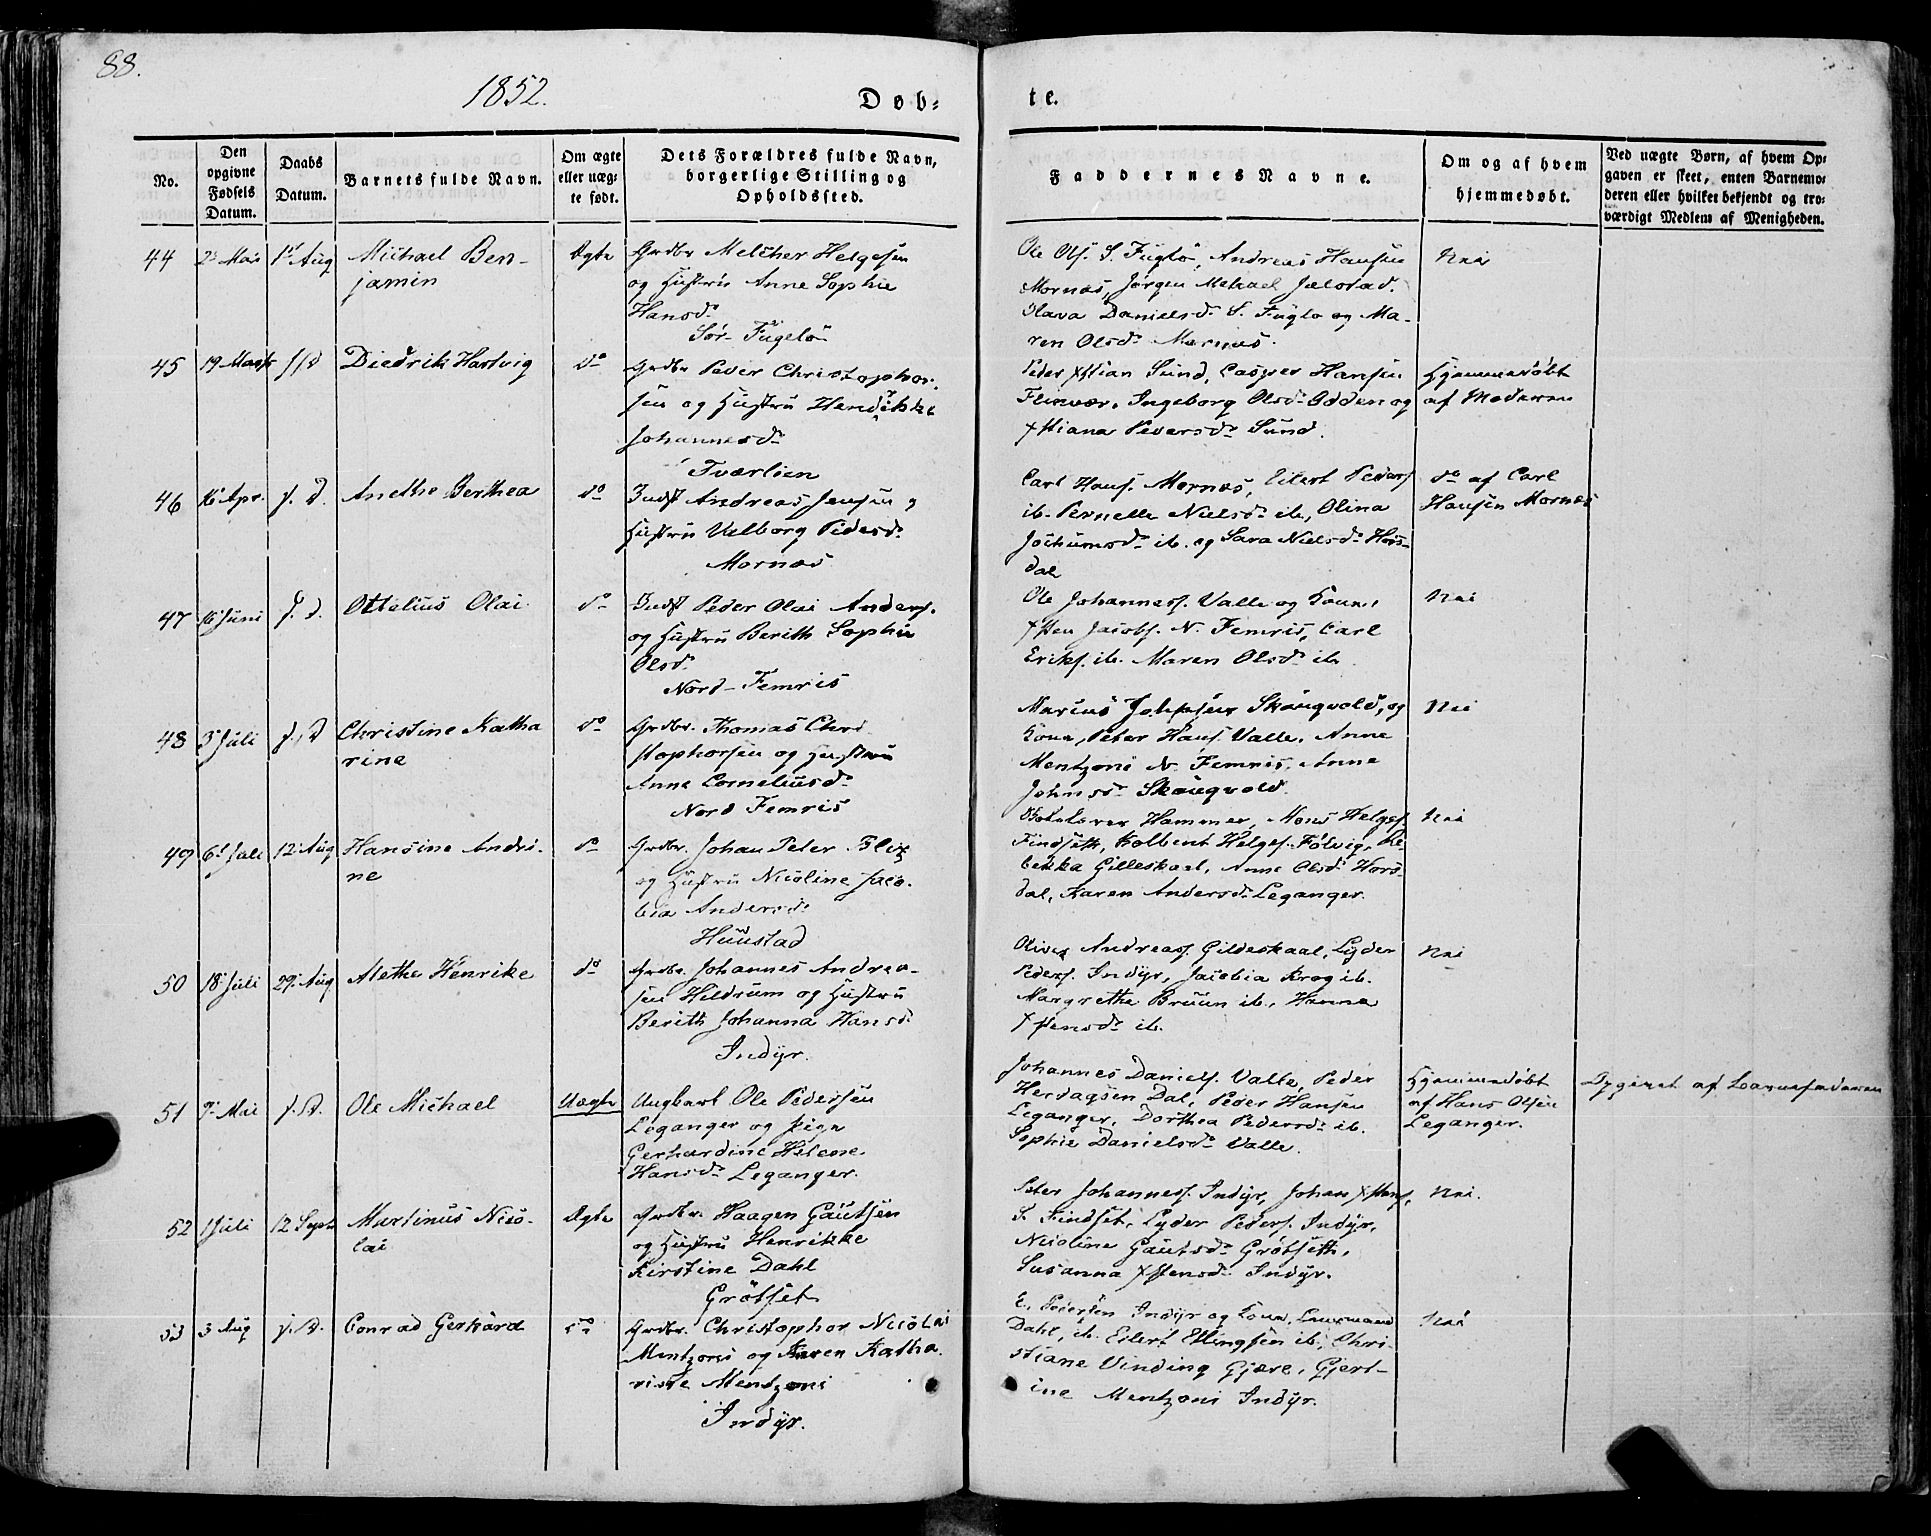 88.
1852.
Døb-
te.
No.
Den
opgivne
Fødsels
Datum.
Daabs
Datum.
Barnets fulde Navn.
Om ægte
eller uæg-
te født.
Dets Forældres fulde Navn,
borgerlige Stilling og
Opholdssted.
Faddernes Navne.
Om og af hvem
hjemmedøbt.
Ved uægte Børn, af hvem Op-
gaven er skeet, enten Barnemo-
deren eller hvilket bekjendt og tro-
værdigt Medlem af Menigheden.
44
1st Aug
Michael Ben-
jamin
Ægte
Grdbr Melcher Helgesen
og Hustru Anne Sophie
Hansd.
Sør-Fugelö
Ole Ols. S. Fuglö, Andreas Hansen
Mornæs, Jørgen Mekael
Olava Danielsd. S. Fuglø og Ma-
ren Olsd. Mornæs.
Nei
45
19 Marts
Diedrik Hartvig
do
Grdbr Peder Christophor-
sen og Hustru Hendrikke
Johannesd.
Tværlien
Peder Xstian Sund, Casper Hansen
Fleinvær, Ingeborg Olsd. Odden og
Xstiana Pedersd. Sund.
Hjemmedøbt
af Moderen
46
16 Apr.
s. D.
Anethe Berthea
do
Indst Andreas Jensen og
Hustru Valborg Pedersd.
Mornæs
Carl Hans. Mornæs, Eilert Peders.
ib. Pernelle Nielsd. ib, Olina
Jochumsd. ib. og Sara Nielsd. Hors-
dal
do af Carl
Hansen Mornæs
47
16 Juni
s. d.
Ottelius Olai
do
Indst Peder Olai Anders.
og Hustru Berith Sophie
Olsd.
Nord-Femris
Ole Johanness. Valle og Kone,
Xsten Jacobs. N. Femris, Carl
Eriks. ib. Maren Olsd. ib.
Nei
48
3 Juli
s. D.
Christine Katha
rine
do
Grdbr. Thomas Chri-
stophorsen og Hustru
Anne Corneliusd.
Nord Femris
Marius Johnsen Skougvold, og
Kone, Peter Hans. Valle, Anne
Mentzoni N. Femris, Anne
Johnsd. Skougvold.
Nei
49
6 Juli
12 Aug
Hansine Andri-
ne
do
Grdbr. Johan Peter Blix
og Hustru Nicoline Jaco-
bia Andersd.
Huustad
Hammer, Mons Helges.
Findseth, Kolbent Helges. Fölvig, Re-
bekka Gilleskaal, Anne Olsd. Hors-
dal, Karen Andersd. Leganger.
Nei
50
18 Juli
29 Aug
Alethe Henrike
do
Grdbr. Johannes Andrea-
sen Hildrum og Hustru
Berith Johanna Hansd.
Indyr.
Oliver Andreas. Gildeskaal, Lyder
Peders. Indyr, Jacobia Krog ib.
Margrethe Bruun ib., Hanna
Xstensd. ib.
Nei
51
7 Mai
s. D.
Ole Michael
Uægte
Ungkarl Ole Pedersen
Leganger og Pige
Gerhardine Helene
Hansd. Leganger.
Johannes Daniels. Valle, Peder
Herdagsen Dal, Peder Hansen
Leganger, Dorthea Pedersd. ib.
Sophie Danielsd. Valle.
Hjemmedøbt
af Hans Olsen
Leganger.
Opgivet af Barnefaderen
52
1 Juli
12 Sept
Martinus Nico-
lai
Ægte
Grdbr. Haagen Gautsen
og Hustru Henrikke
Kirstine Dahl
Grötset
Peter Johanness. Indyr, Johan Xstens.
S. Findset, Lyder Peders. Indyr,
Nicoline Gautsd. Grötseth,
Susanna Xstensd. Indyr.
Nei.
53
3 Aug
s. D.
Conrad Gerhard
do
Grdbr. Christopher Nicolai
Mentzoni og Karen Katha-
rine Mentzoni
Indyr.
E. Pedersen Indyr og Kone,
Dahl, ib. Eilert Ellingsen ib., Chri-
stiane Vinding Gjære, Gjert-
ine Mentzoni Indyr.
Nei